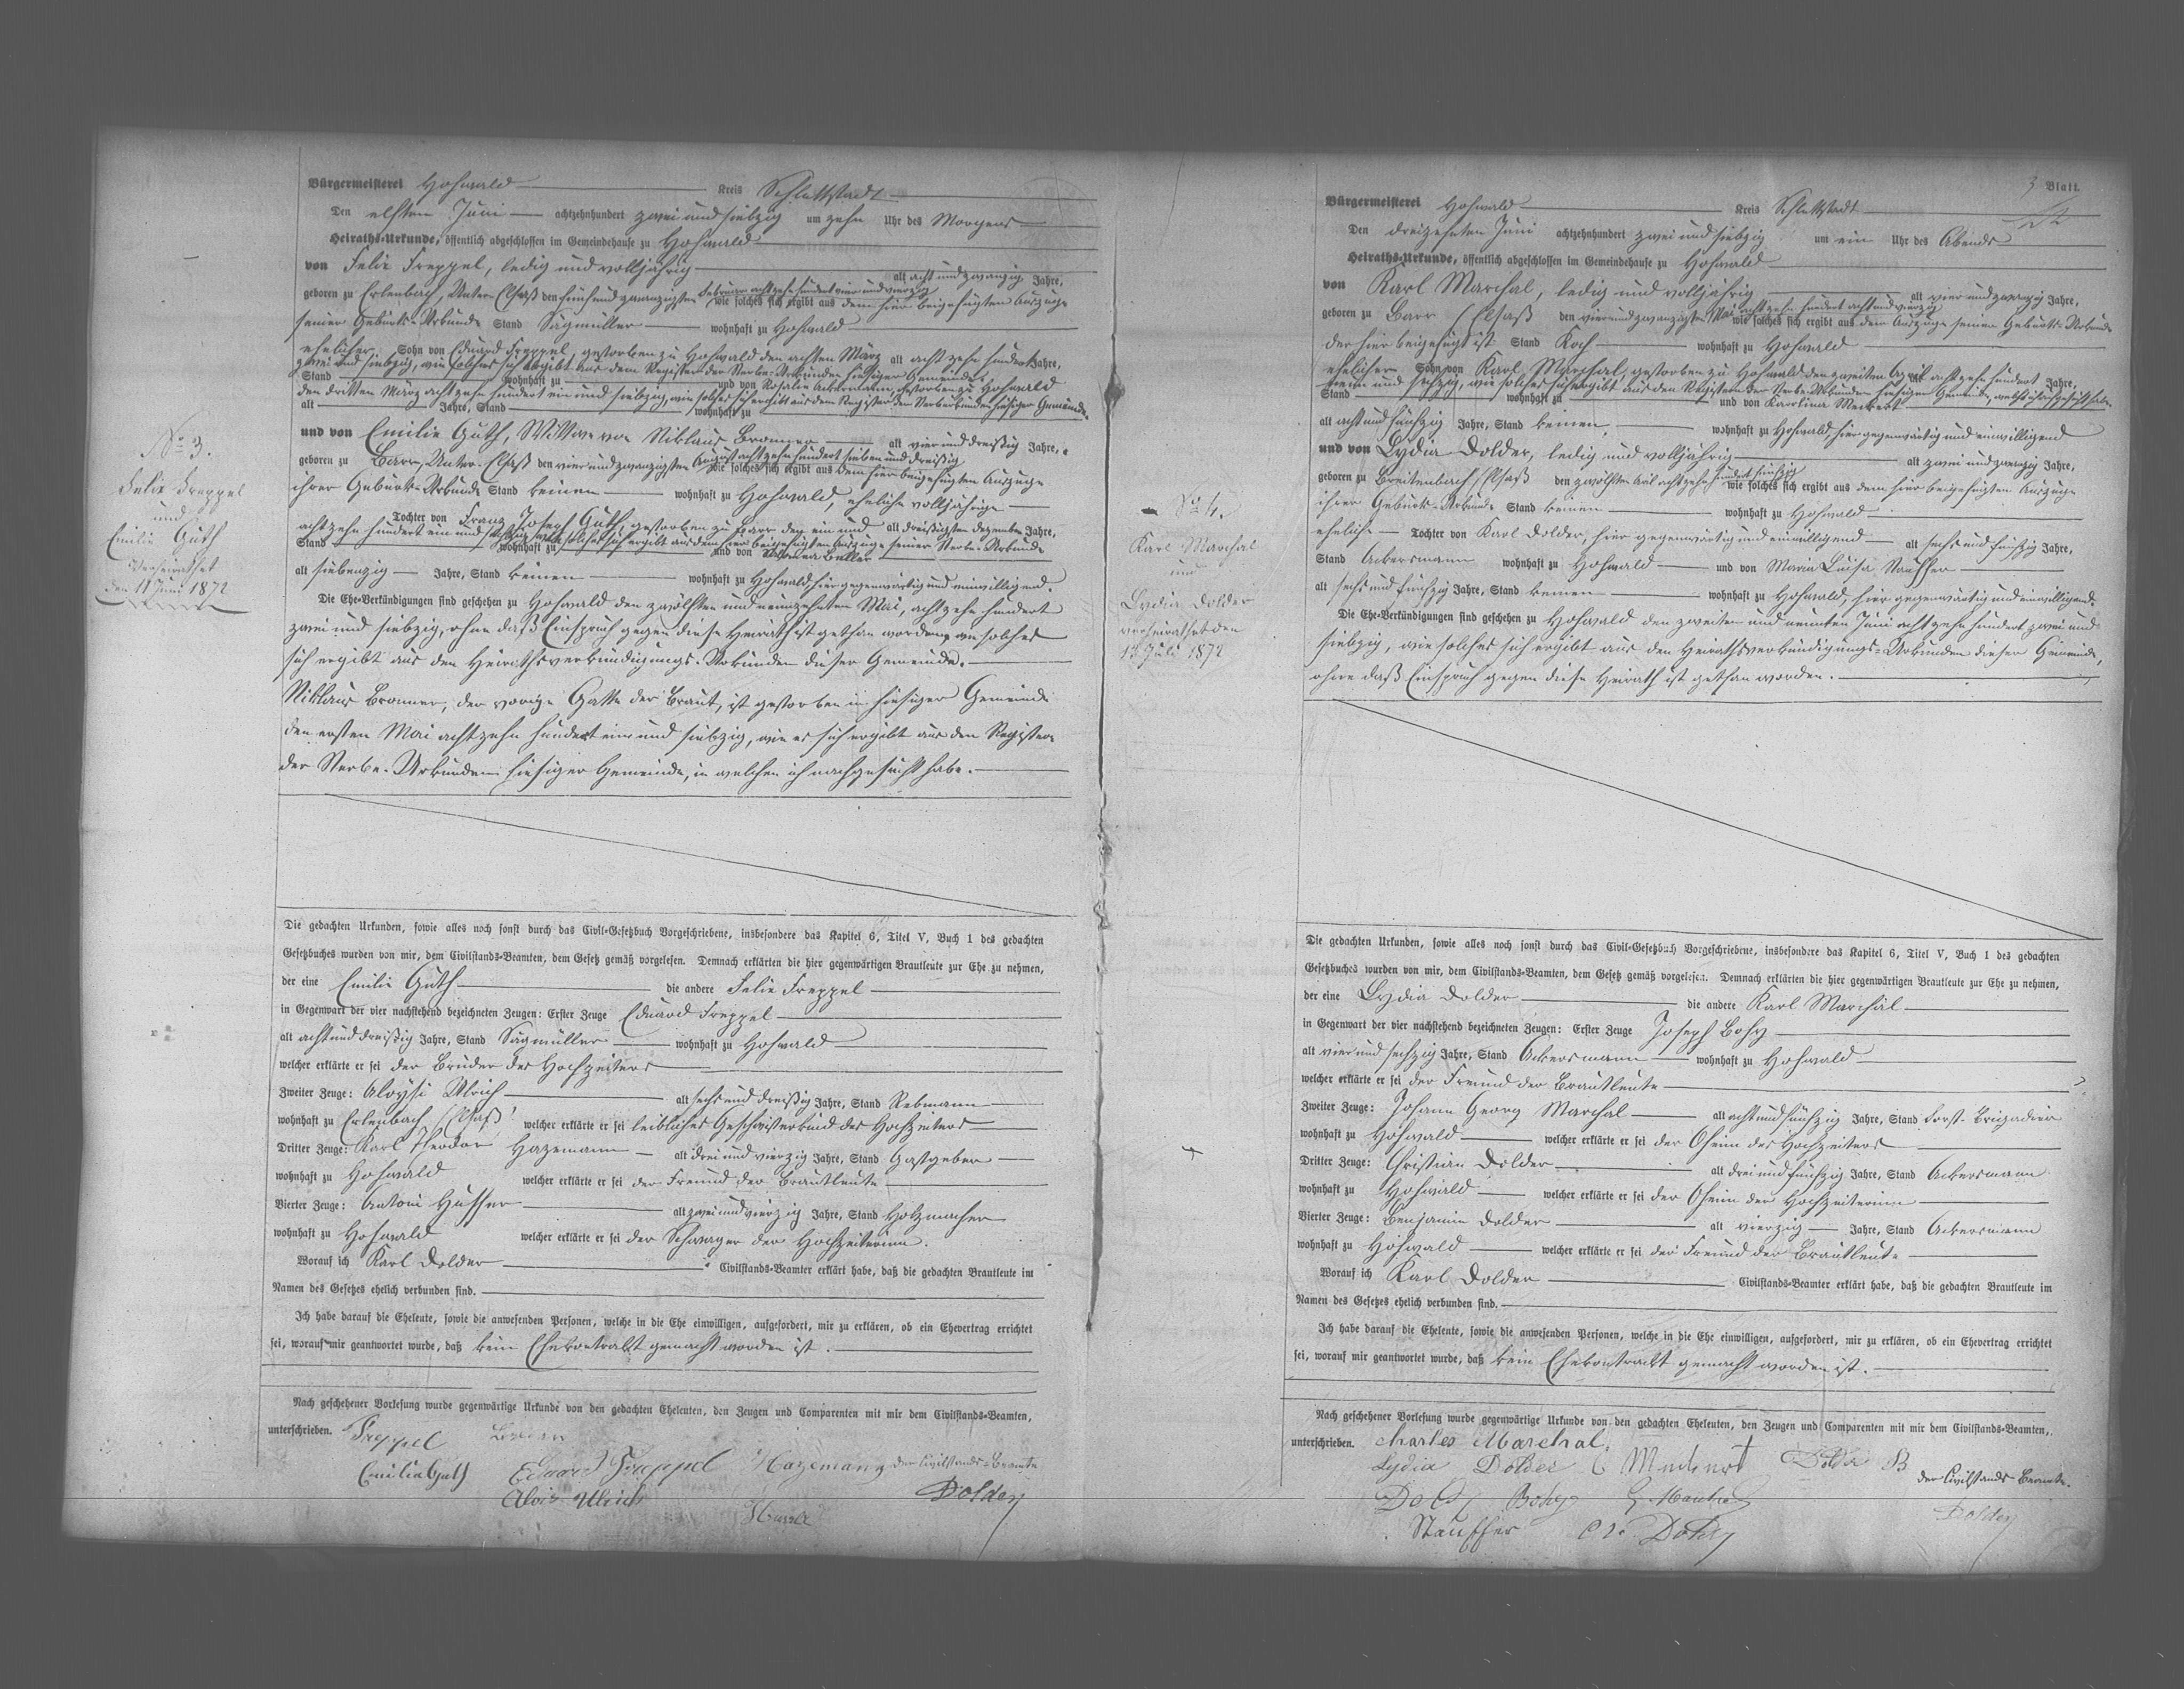 Bürgermeisterei Hohwald Kreis Schlettstadt
Den elften Juni achtzehnhundert zwei und siebzig um zehn Uhr des Morgens
Heiraths-Urkunde, öffentlich abgeschlossen im Gemeindehause zu Hohwald
von Felix Freppel, ledig und volljährig alt acht und zwanzig Jahre,
geboren zu Erlenbach, Unter-Elsaß den fünf und zwanzigsten Februar achtzehn hundert vier und vierzig wie solches sich ergibt aus dem hier beigefügten Auszuge
seiner Geburts-Urkunde Stand Sägmüller wohnhaft zu Hohwald
ehelicher Sohn von Eduard Freppel, gestorben zu Hohwald den achten März alt achtzehn hundert Jahre,
zwei und siebzig, wie solches sich ergibt aus dem Register der Sterbe-Urkunden hiesiger Gemeinde,
Stand wohnhaft zu und von Rosalia Ackermann, gestorben zu Hohwald
den dritten März achtzehn hundert ein und siebzig, wie solches sich ergibt aus dem Register der Sterbeurkunden hiesiger Gemeinde.
alt Jahre, Stand wohnhaft zu
und von Emilie Guth, Wittwe von Niklaus Bronner alt vier und dreißig Jahre,
geboren zu Barr, Unter-Elsaß den vier und zwanzigsten August achtzehn hundert sieben und dreißig wie solches sich ergibt aus dem hier beigefügten Auszuge
ihrer Geburts-Urkunde Stand keinen wohnhaft zu Hohwald, eheliche volljährige
Tochter von Franz Joseph Guth, gestorben zu Barr den ein und alt dreißigsten Dezember Jahre,
achtzehn hundert ein und sechzig, wie solches sich ergibt aus dem hier beigefügten Auszuge seiner Sterbe-Urkunde
Stand wohnhaft zu und von Baller
alt siebenzig Jahre, Stand keinen wohnhaft zu Hohwald, hier gegenwärtig und einwilligend.
Die Ehe-Verkündigungen sind geschehen zu Hohwald den zwölften und neunzehnten Mai, achtzehn hundert
zwei und siebzig, ohne daß Einspruch gegen diese Heirath ist gethan worden, wie solches
sich ergibt aus den Heirathsverkündigungs-Urkunden dieser Gemeinde.
Niklaus Bronner, der vorige Gatte der Braut, ist gestorben in hiesiger Gemeinde
den ersten Mai achtzehn hundert ein und siebzig, wie es sich ergibt aus den Register
der Sterbe-Urkunden hiesiger Gemeinde, in welchen ich nachgesucht habe.
No 3.
Felix Freppel
und
Emilie Guth
Verheirathet
den 11 Juni 1872
Die gedachten Urkunden, sowie alles noch sonst durch das Civil-Gesetzbuch Vorgeschriebene, insbesondere das Kapitel 6, Titel V, Buch 1 des gedachten
Gesetzbuches wurden von mir, dem Civilstands-Beamten, dem Gesetz gemäß vorgelesen. Demnach erklärten die hier gegenwärtigen Brautleute zur Ehe zu nehmen,
der eine Emilie Guth die andere Felix Freppel
in Gegenwart der vier nachstehend bezeichneten Zeugen: Erster Zeuge Eduard Freppel
alt acht und dreißig Jahre, Stand Sägmüller wohnhaft zu Hohwald
welcher erklärte er sei der Bruder des Hochzeiters
Zweiter Zeuge: Aloysi Ulrich alt sechs und dreißig Jahre, Stand Rebmann
wohnhaft zu Erlenbach (Elsaß) welcher erklärte er sei leibliches Geschwisterkind des Hochzeiters
Dritter Zeuge: Karl Theodor Hazemann alt drei und vierzig Jahre, Stand Gastgeber
wohnhaft zu Hohwald welcher erklärte er sei der Freund der Brautleute
Vierter Zeuge: Antoni Husser alt zwei und vierzig Jahre, Stand Holzmacher
wohnhaft zu Hohwald welcher erklärte er sei der Schwager der Hochzeiterinn.
Worauf ich Karl Dolder Civilstands-Beamter erklärt habe, daß die gedachten Brautleute im
Namen des Gesetzes ehelich verbunden sind.
Ich habe darauf die Eheleute, sowie die anwesenden Personen, welche in die Ehe einwilligen, aufgefordert, mir zu erklären, ob ein Ehevertrag errichtet
sei, worauf mir geantwortet wurde, daß kein Ehekontrakt gemacht worden ist.
Nach geschehener Vorlesung wurde gegenwärtige Urkunde von den gedachten Eheleuten, den Zeugen und Comparenten mit mir dem Civilstands-Beamten,
unterschrieben. Freppel
Emilie Guth Eduard Freppel Hazemann der Civilstands-Beamte
Alois Ulrich Dolder
3 Blatt.
Bürgermeisterei Hohwald Kreis Schlettstadt
Den dreizehnten Juni achtzehnhundert zwei und siebzig um ein Uhr des Abends
Heiraths-Urkunde, öffentlich abgeschlossen im Gemeindehause zu Hohwald
von Karl Marchal, ledig und volljährig alt vier und zwanzig Jahre,
geboren zu Barr (Elsaß den vier und zwanzigsten Mai achtzehn hundert acht und vierzig wie solches sich ergibt aus dem Auszuge seiner Geburts-Urkunde
der hier beigefügt ist Stand Koch wohnhaft zu Hohwald
ehelicher Sohn von Karl Marchal, gestorben zu Hohwald den zweiten April alt achtzehn hundert Jahre,
neun und sechzig, wie solches sich ergibt aus den Registern der Sterbe-Urkunden hiesiger Gemeinde,
Stand wohnhaft zu und von Karolina Meckert
alt acht und fünfzig Jahre, Stand keinen, wohnhaft zu Hohwald, hier gegenwärtig und einwilligend
und von Lydia Dolder, ledig und volljährig alt zwei und zwanzig Jahre,
geboren zu Breitenbach (Elsaß den zwölften achtzehn hundert fünfzig wie solches sich ergibt aus dem hier beigefügten Auszuge
ihrer Geburts-Urkunde Stand keinen wohnhaft zu Hohwald
eheliche Tochter von Karl Dolder, hier gegenwärtig und einwilligend alt sechs und fünfzig Jahre,
Stand Ackersmann wohnhaft zu Hohwald und von Maria Luisa Stauffer
alt sechs und fünfzig Jahre, Stand keinen wohnhaft zu Hohwald, hier gegenwärtig und einwilligend.
Die Ehe-Verkündigungen sind geschehen zu Hohwald den zweiten und neunten Juni achtzehn hundert zwei und
siebzig, wie solches sich ergibt aus den Heirathsverkündigungs-Urkunden dieser Gemeinde,
ohne daß Einspruch gegen diese Heirath ist gethan worden.
No 4.
Karl Marchal
und
Lydia Dolder
verheirathet den
13 Juli 1872
Die gedachten Urkunden, sowie alles noch sonst durch das Civil-Gesetzbuch Vorgeschriebene, insbesondere das Kapitel 6, Titel V, Buch 1 des gedachten
Gesetzbuches wurden von mir, dem Civilstands-Beamten, dem Gesetz gemäß vorgelesen. Demnach erklärten die hier gegenwärtigen Brautleute zur Ehe zu nehmen,
der eine Lydia Dolder die andere Karl Marchal
in Gegenwart der vier nachstehend bezeichneten Zeugen: Erster Zeuge Joseph Bohy
alt vier und sechzig Jahre, Stand Ackersmann wohnhaft zu Hohwald
welcher erklärte er sei der Freund der Brautleute
Zweiter Zeuge: Johann Georg Marchal alt acht und fünfzig Jahre, Stand Forst-Brigadier
wohnhaft zu Hohwald welcher erklärte er sei der Oheim des Hochzeiters
Dritter Zeuge: Christian Dolder alt drei und fünfzig Jahre, Stand Ackersmann
wohnhaft zu Hohwald welcher erklärte er sei der Oheim der Hochzeiterinn
Vierter Zeuge: Benjamin Dolder alt vierzig Jahre, Stand Ackersmann
wohnhaft zu Hohwald welcher erklärte er sei der Freund der Brautleute
Worauf ich Karl Dolder Civilstands-Beamter erklärt habe, daß die gedachten Brautleute im
Namen des Gesetzes ehelich verbunden sind.
Ich habe darauf die Eheleute, sowie die anwesenden Personen, welche in die Ehe einwilligen, aufgefordert, mir zu erklären, ob ein Ehevertrag errichtet
sei, worauf mir geantwortet wurde, daß kein Ehekontrackt gemacht worden ist.
Nach geschehener Vorlesung wurde gegenwärtige Urkunde von den gedachten Eheleuten, den Zeugen und Comparenten mit mir dem Civilstands-Beamten,
unterschrieben. Charles Marchal.
Lydia Dolder Dolder B der Civilstands Beamte.
Bohy Dolder
Stauffer Dolder